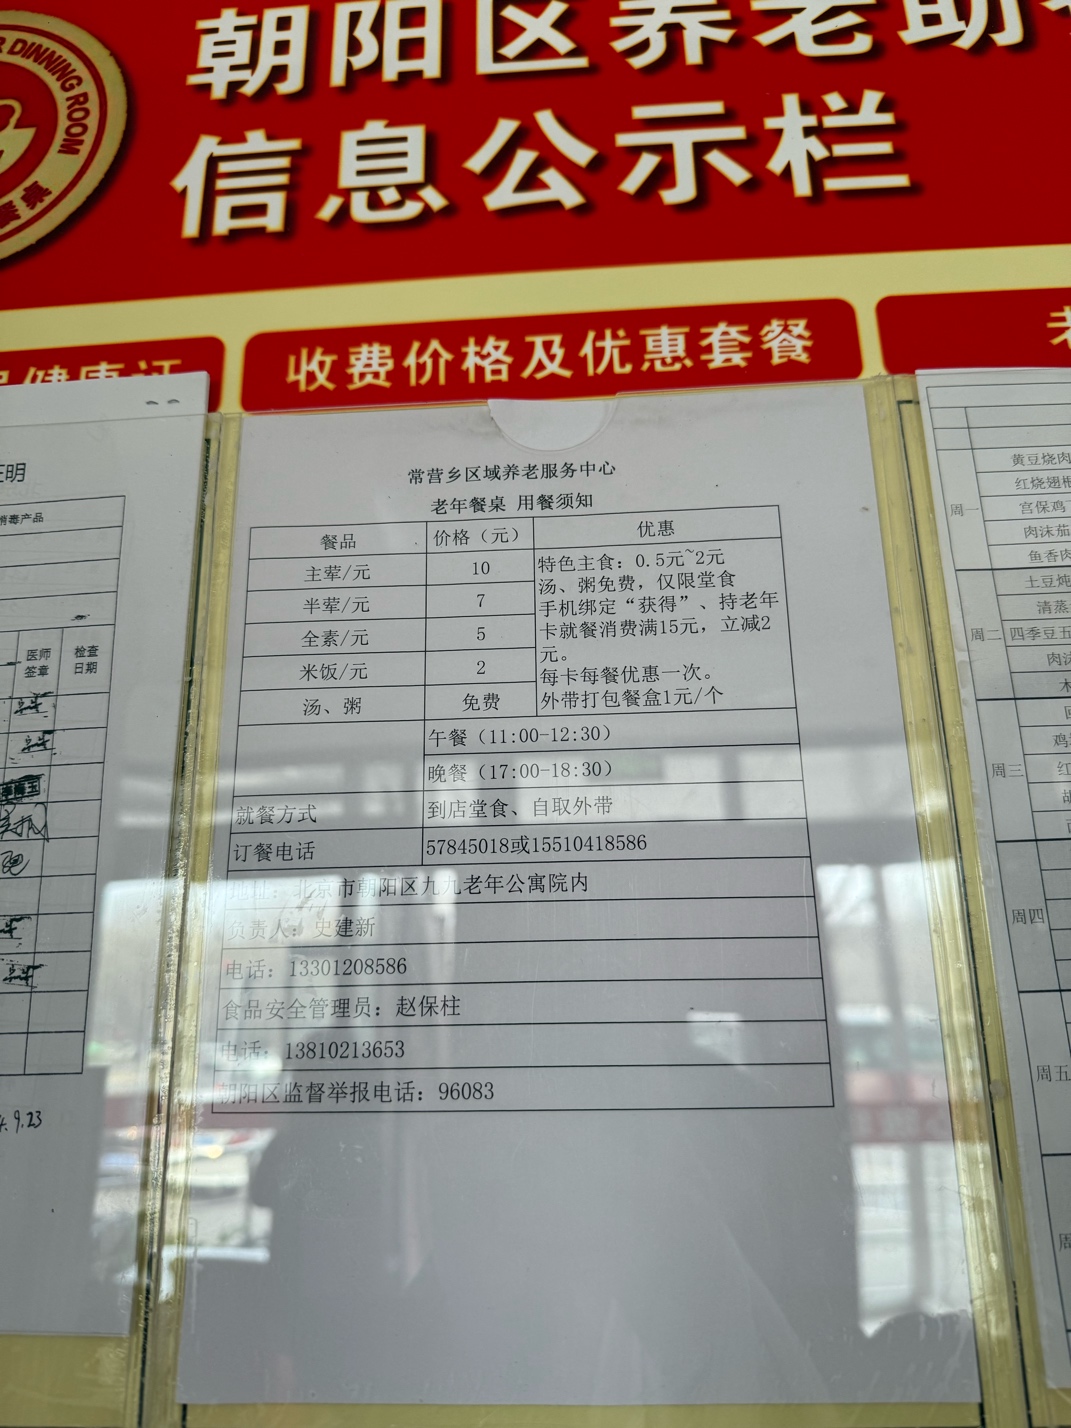 DINNING ROOM
朝阳区养老助
信息公示栏
收费价格及优惠套餐
健康证
老
证明
消毒产品
医师签章
检查日期
9.23
常营乡区域养老服务中心
老年餐桌 用餐须知
餐品 价格（元） 优惠
主荤/元 10
半荤/元 7
全素/元 5
米饭/元 2
汤、粥 免费
特色主食：0.5元~2元
汤、粥免费，仅限堂食
手机绑定“获得”、持老年
卡就餐消费满15元，立减2
元。
每卡每餐优惠一次。
外带打包餐盒1元/个
午餐（11:00-12:30）
晚餐（17:00-18:30）
就餐方式 到店堂食、自取外带
订餐电话 57845018或15510418586
地址：北京市朝阳区九九老年公寓院内
负责人：史建新
电话：13301208586
食品安全管理员：赵保柱
电话：13810213653
朝阳区监督举报电话：96083
周一
黄豆烧肉
红烧翅根
宫保鸡丁
肉沫茄
鱼香肉
周二
土豆炖
清蒸
四季豆五
肉沫
木
周三
鸡
红
胡
周四
周五
周